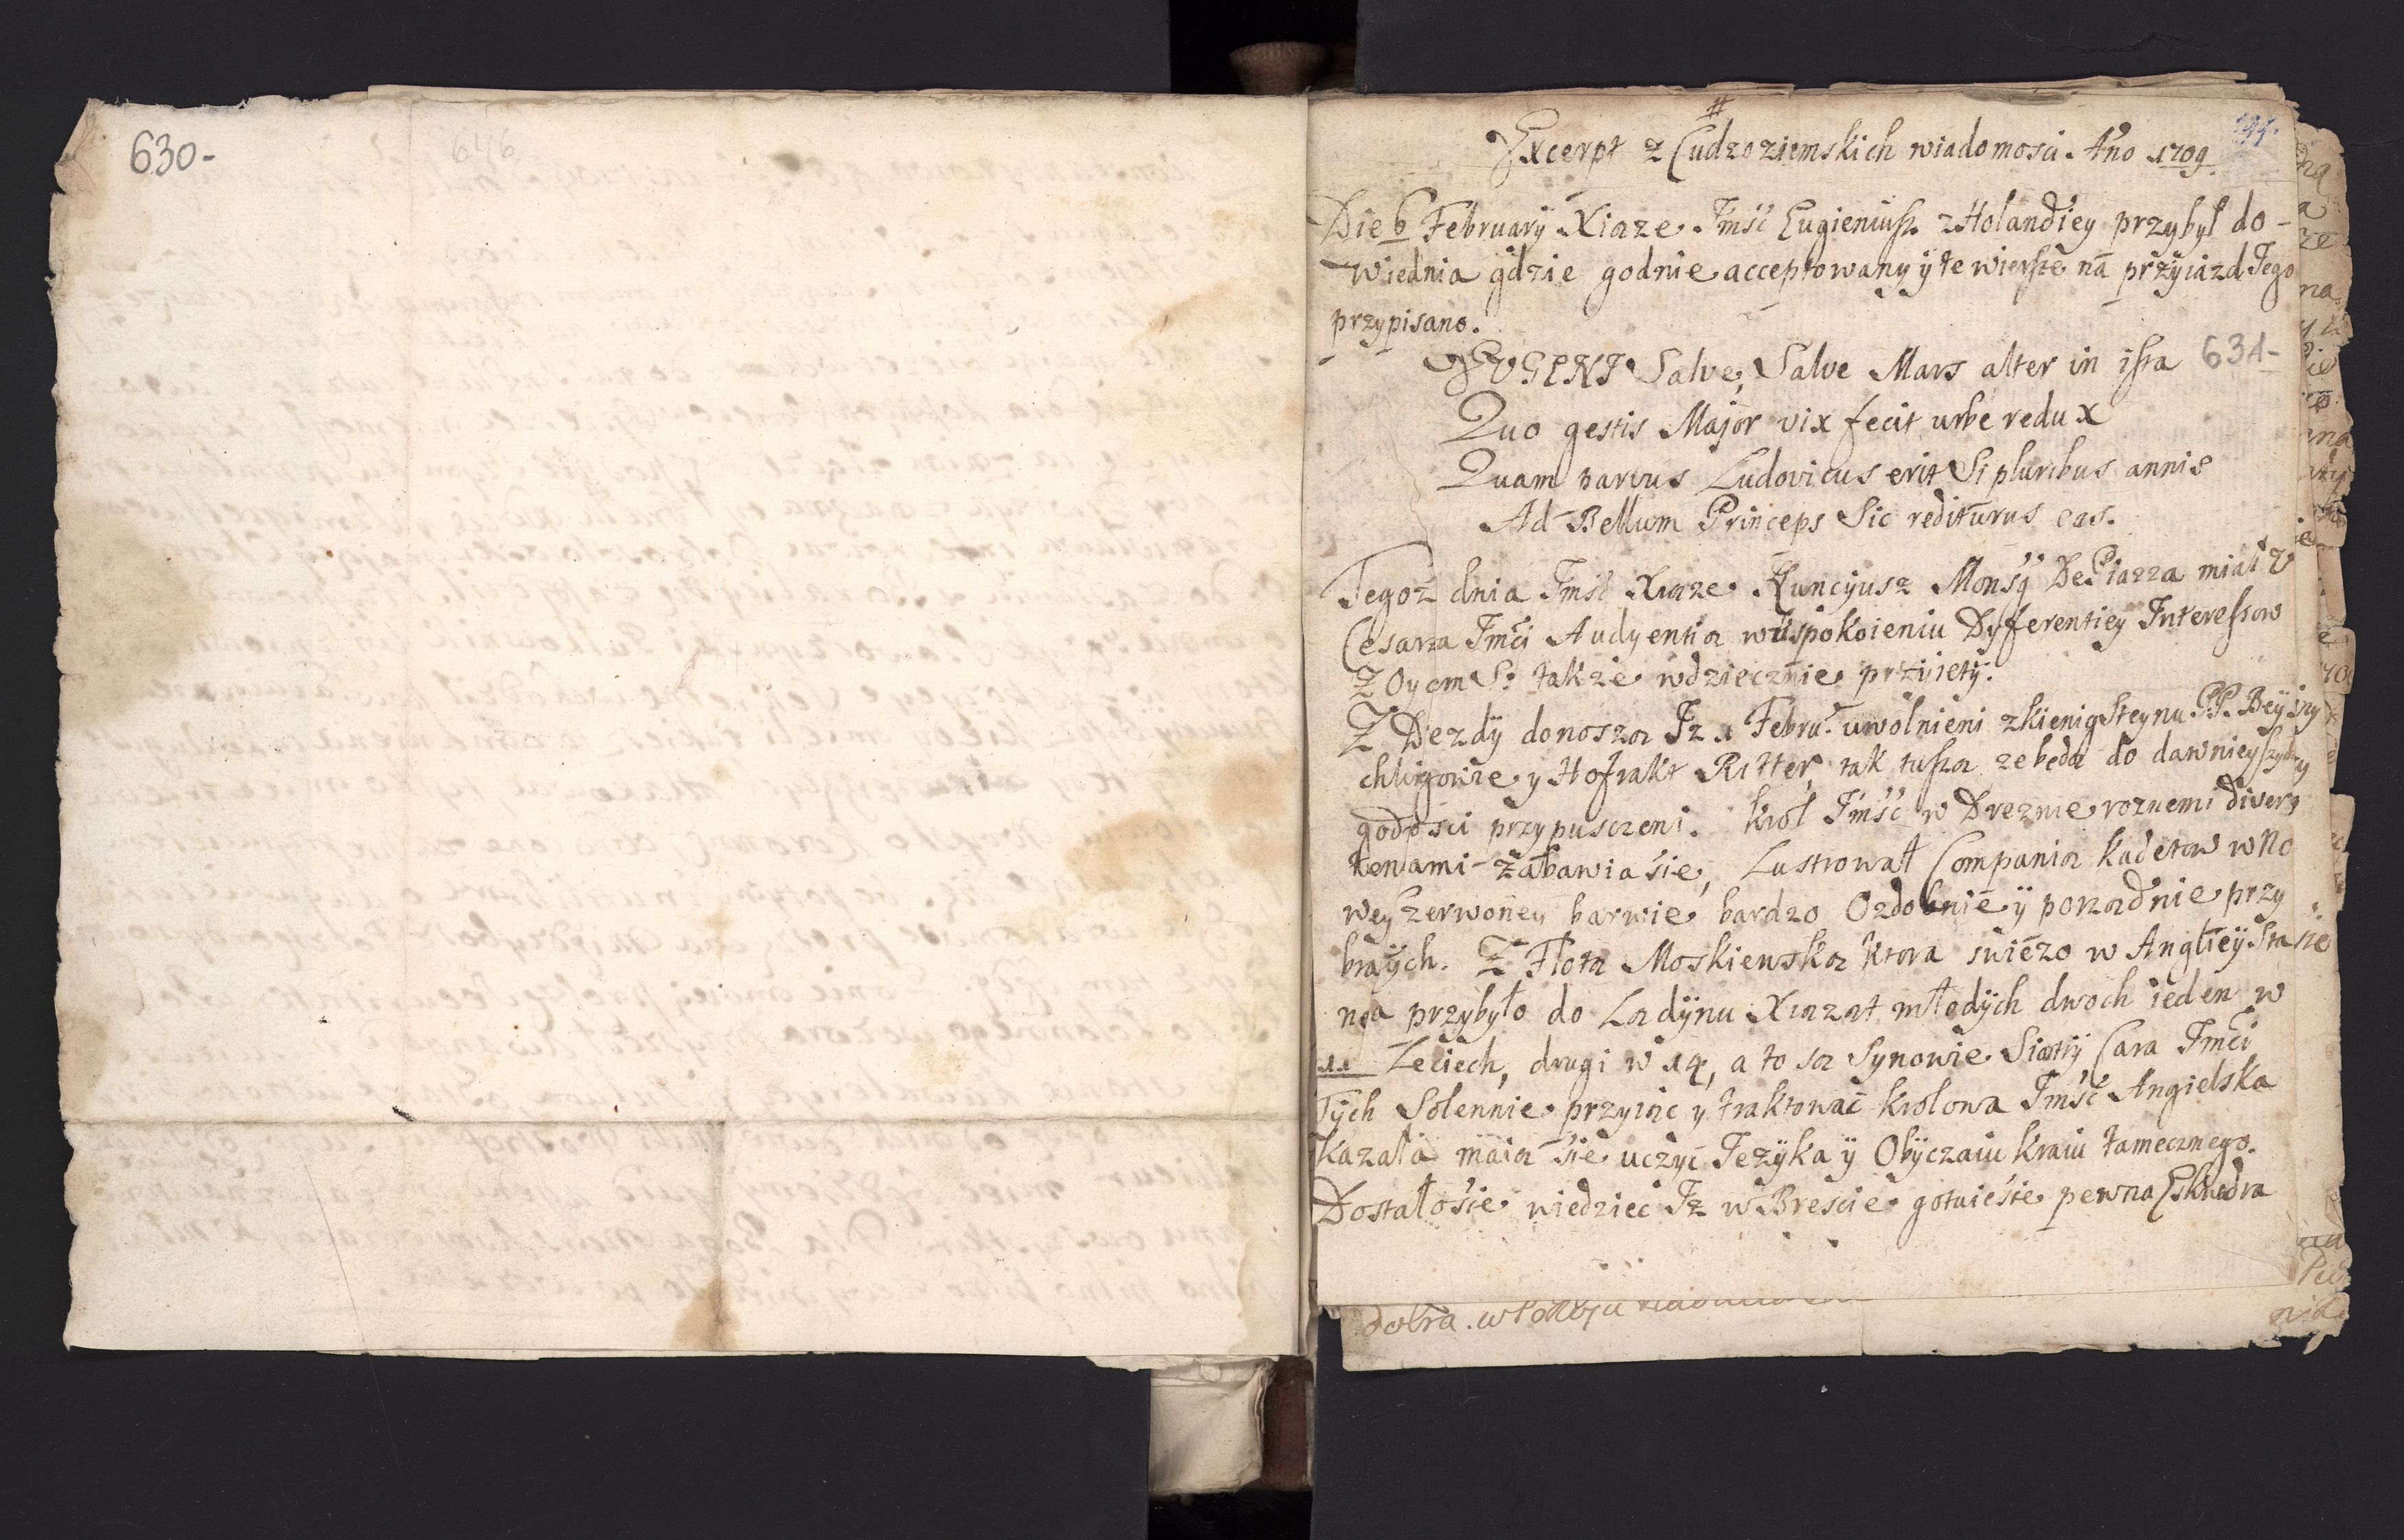 630-
646
#
Excerpt z Cudzoziemskich wiadomosci. Ao 1709
Die 6 February Xiaze Jmść Eugieniusz z Holandiey przybył do-
wiednia gdzie godnie acceptowany y te wiersze na przyiazd Jego
przypisano.
EVGENI Salve, Salve Mars alter in ista
631-
Quo gestis Major vix fecit urbe redux
Quam parvus Ludovicus erit Si pluribus annis
Ad Bellum Princeps Sic rediturus eas.
Tegoz dnia Jmść Xiaze Nuncyusz Monsg De Piazza miał v
Cesarza Jmći Audyentia wuspokoieniu Dyferentiey Interessow
Z Oycem S: takze wdziecznie przyiety.
Z Drezdy donosza Iz 1 Febru: uwolnieni z kienigSteynu PP. Bey
chlingowie y Hofrakt Ritter, tak tusza ze beda do dawnieyszy
godności przypusczeni. krol Jmść w Dreznie roznemi diver
tenami zabawia sie, Lustrował Compania kadetow w no
wey zerwoney barwie bardzo Ozdobnie y porzadnie przy
braych. Z Flota Moskiewska ktora swiezo w Angliey Sta
nea przybyło do Ladynu Xiazat młodych dwoch ieden w
11 Leciech, drugi w 14, a to sa Synowie Siostry Cara Jmći
Tych Solennie przyiac y traktować krolowa Jmść Angielska
kazała maia sie uczyć Jezyka y Obyczaiu kraiu tamecznego.
Dostało sie wiedziec Iz w Brescie gotuie sie pewna Eskwdra
dobra.